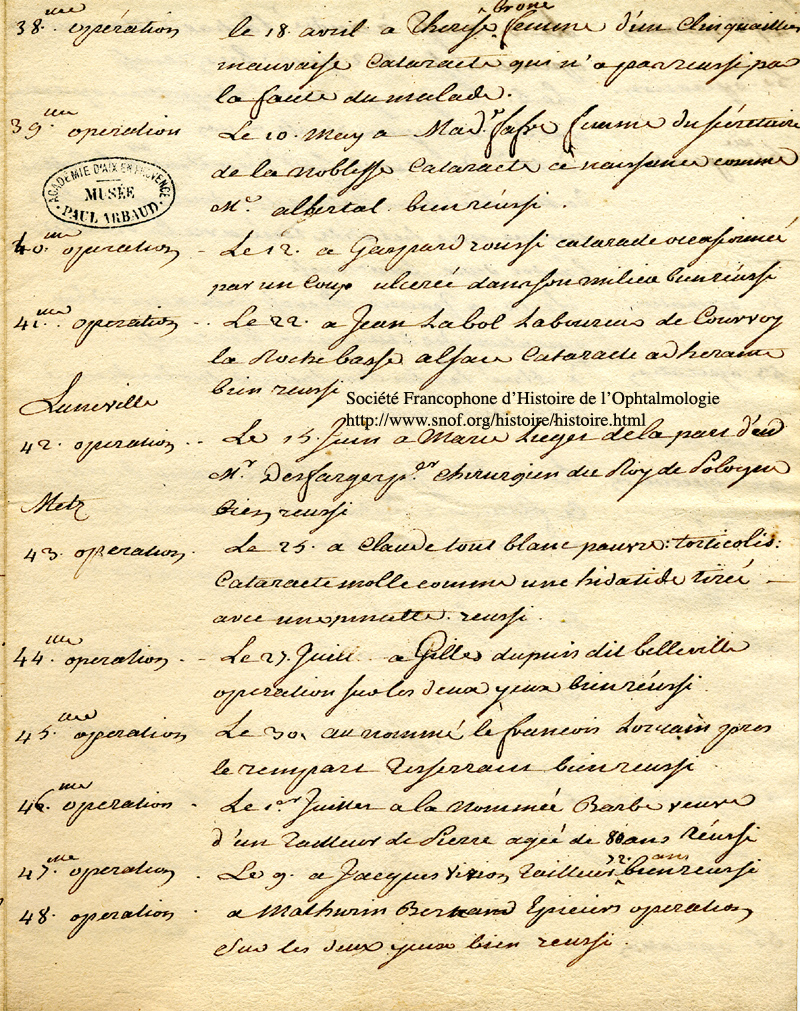 38.me opération le 18. avril a Therese brone femme d'un Clinquaillier
mauvaise Cataracte qui n'a pas reussi par
la faute du malade.
39.me operation Le 10. May a Mad.e femme du sécretaire
de la noblesse Cataracte de naissance comme
Mr. albertal. bien réussi.
ACADEMIE D'AIX EN PROVENCE
MUSÉE
PAUL ARBAUD
40.me operation - Le 12. a Gaspard roussi cataracte occasionnée
par un Coup ulcerée dans son milieu bien réussi
41.me operation - Le 22. a Jean Labol Laboureur de Courroy
la Roche basse alsace Cataracte adherante
bien reussi
Société Francophone d'Histoire de l'Ophtalmologie
http://www.snof.org/histoire/histoire.html
Luneville
42. operation - Le 15. Juin a Marie de la part de
Mr. Desfarges pr. chirurgien du Roy de Pologne
bien reussi
Metz
43. operation. Le 25. a Claude tout blanc pauvre: torticolis:
Cataracte molle comme une hidatide tirée -
avec une pincette. reussi.
44.me operation - Le 27. Juin a Gilles dupuis dit belleville
operation sur les deux yeux bien réussi.
45.me operation Le 30. au nommé le françois Lorrain pres
le rempart bien reussi.
46.me operation - Le 1er Juillet a la nommée Barbe veuve
d'un Tailleur de Pierre agée de 80 ans réussi
47.me operation - Le 9. a Jacques Tailleur 72. ans bien reussi
48. operation - a Mathurin Bernard Epicier operation
sur les deux yeux bien reussi.